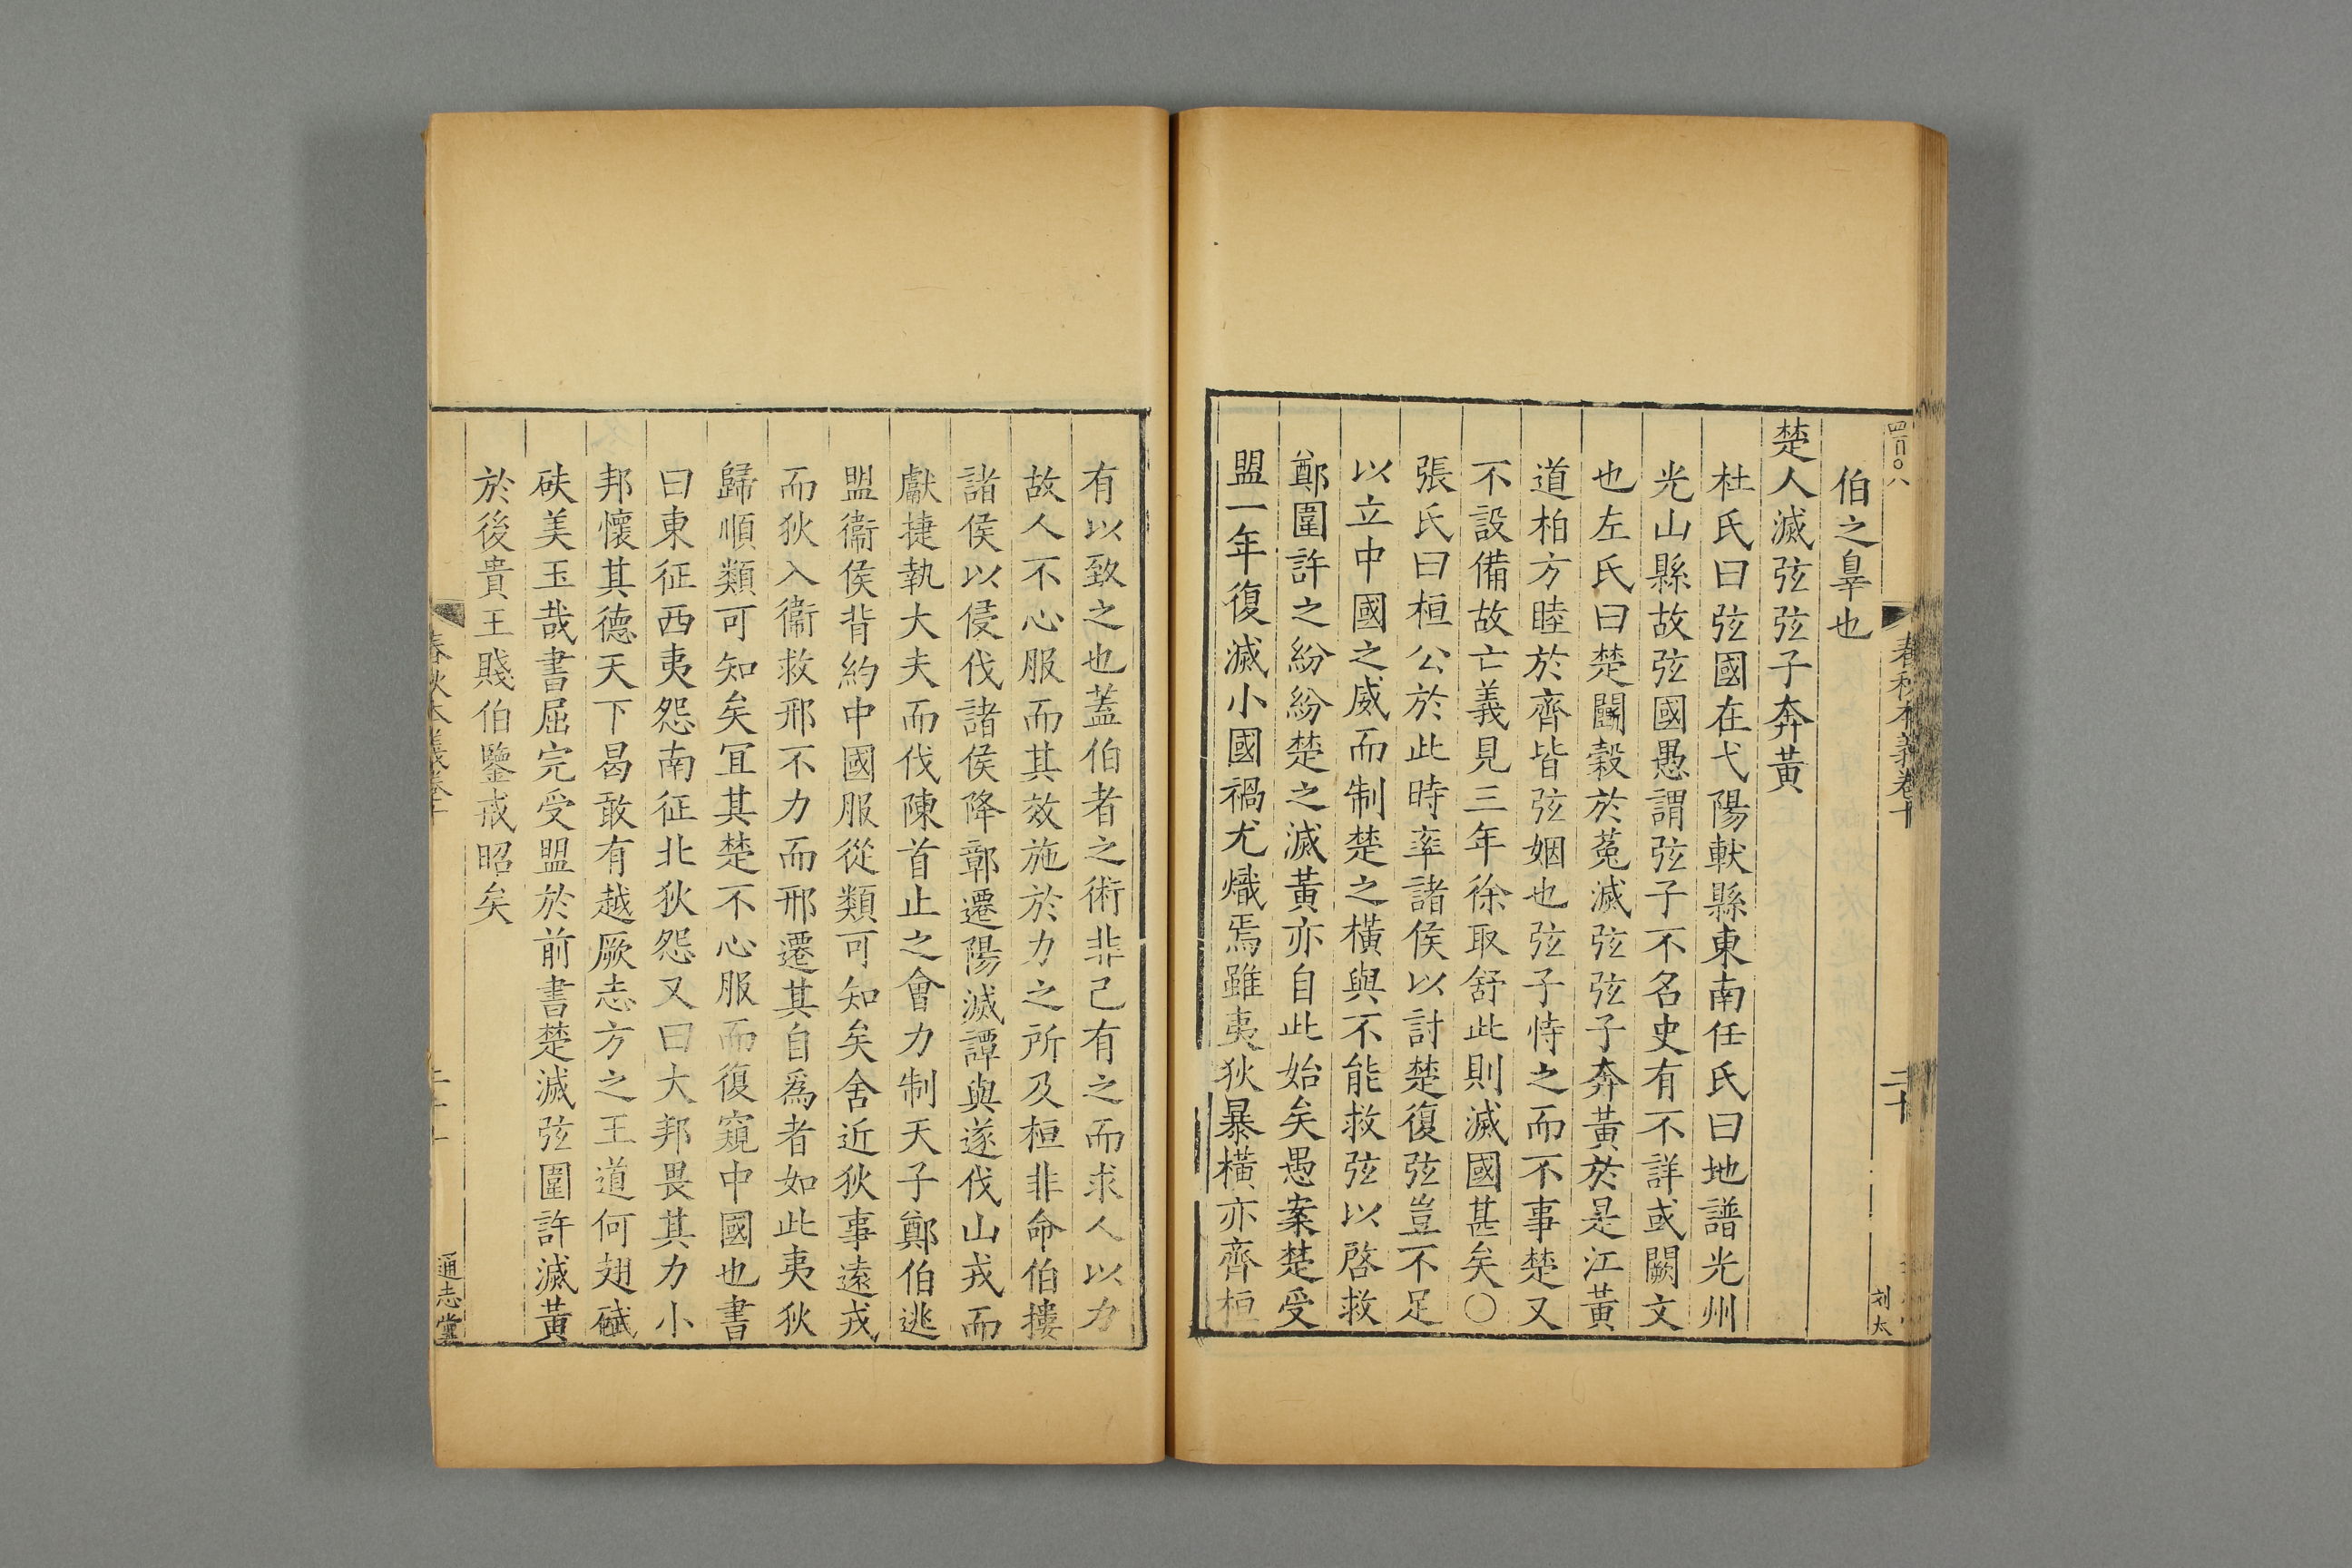 四百〇八
春秋本義卷十
二十
刘太
伯之辠也
楚人滅弦弦子奔黃
杜氏曰弦國在弋陽軑縣東南任氏曰地譜光州
光山縣故弦國愚謂弦子不名史有不詳或闕文
也左氏曰楚鬭穀於菟滅弦弦子奔黃於是江黃
道柏方睦於齊皆弦姻也弦子恃之而不事楚又
不設備故亡義見三年徐取舒此則滅國甚矣〇
張氏曰桓公於此時率諸侯以討楚復弦豈不足
以立中國之威而制楚之橫與不能救弦以啓救
鄭圍許之紛紛楚之滅黃亦自此始矣愚案楚受
盟一年復滅小國禍尤熾焉雖夷狄暴橫亦齊桓
有以致之也蓋伯者之術非己有之而求人以力
故人不心服而其效施於力之所及桓非命伯摟
諸侯以侵伐諸侯降鄣遷陽滅譚與遂伐山戎而
獻捷執大夫而伐陳首止之會力制天子鄭伯逃
盟衞侯背約中國服從類可知矣舍近狄事遠戎
而狄入衞救邢不力而邢遷其自爲者如此夷狄
歸順類可知矣冝其楚不心服而復窺中國也書
曰東征西夷怨南征北狄怨又曰大邦畏其力小
邦懷其德天下曷敢有越厥志方之王道何翅碔
砆美玉哉書屈完受盟於前書楚滅弦圍許滅黃
於後貴王賤伯鑒戒昭矣
春秋本義卷十
通志堂